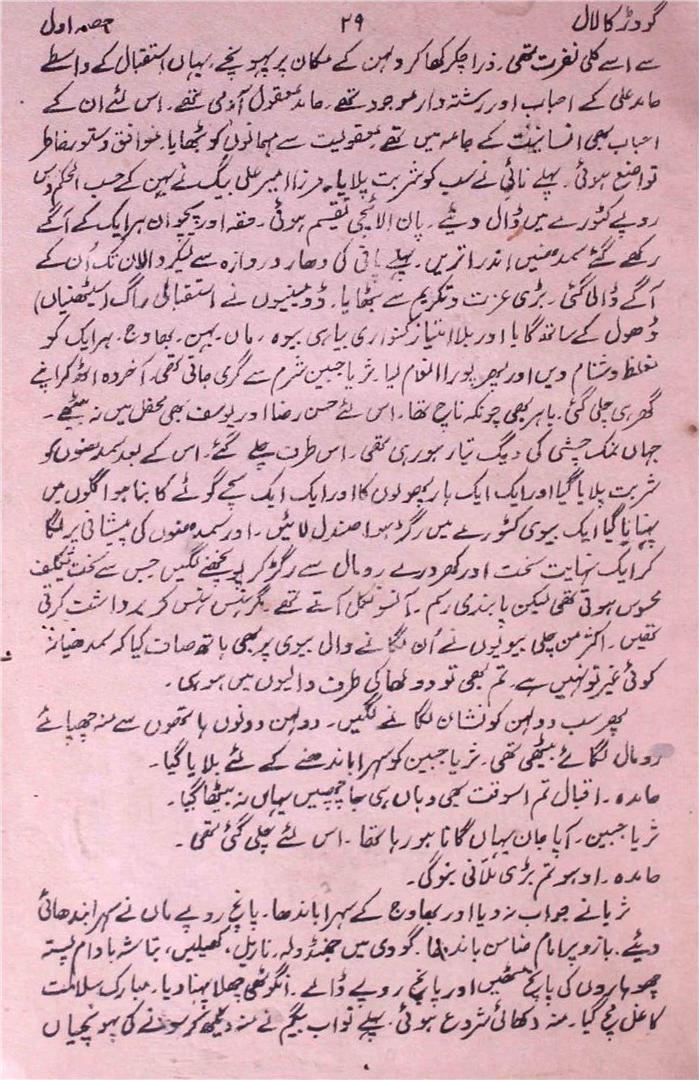 گودڑ کا لال ۲۹ حصہ اول
سے اسے کلی نفرت تھی۔ ذرا چکر کھا کر دلہن کے مکان پر پہونچے۔ یہاں استقبال کے واسطے
حامد علی کے احباب اور رشتہ دار موجود تھے۔ حامد معقول آدمی تھے۔ اس لئے ان کے
احباب بھی انسانیت کے جامہ میں تھے معقولیت سے مہمانوں کو بٹھایا۔ موافق دستور خاطر
تواضع ہوئی۔ پہلے نائی نے سب کو شربت پلایا۔ مرزا امیر علی بیگ نے بہن کے حسب الحکم دس
روپے کٹورے میں ڈال دیئے۔ پان الائچی تقسیم ہوئی۔ حقہ اور پیچوان ہر ایک کے آگے
رکھے گئے سمدھنیں اندر اتریں۔ پہلے پانی کی دھار دروازہ سے لیکر دالان تک اُن کے
آگے ڈالی گئی۔ بڑی عزت و تکریم سے بٹھایا۔ ڈومینیوں نے استقبالی راگ (سیٹھنیاں)
ڈھول کے ساتھ گایا اور بلا امتیاز کنواری بیاہی بیوہ، ماں۔ بہن۔ بھاوج۔ ہر ایک کو
مغلظ دشنام دیں اور پھر پورا انعام لیا۔ ثریا جبین شرم سے گری جاتی تھی۔ آخر وہ اٹھ کر اپنے
گھر ہی چلی گئی۔ باہر بھی چونکہ ناچ تھا۔ اس لئے حسن رضا اور یوسف بھی محفل میں نہ بیٹھے۔
جہاں نمک چشی کی دیگ تیار ہو رہی تھی۔ اس طرف چلے گئے۔ اس کے بعد سمدھنوں کو
شربت پلایا گیا اور ایک ایک ہار پھولوں کا اور ایک ایک سچے گوٹے کا بنا ہوا گلوں میں
پہنایا گیا ایک بیوی کٹورے میں رگڑا ہوا صندل لائیں۔ اور سمدھنوں کی پیشانی پر لگا
کر ایک نہایت سخت اور کھردرے رومال سے رگڑ کر پونچھنے لگیں جس سے سخت تکلیف
محسوس ہوتی تھی لیکن پابندی رسم۔ آنسو نکل آتے تھے۔ مگر ہنس ہنس کر برداشت کرتی
تھیں۔ اکثر من چلی بیویوں نے اُن لگانے والی بیوی پر بھی ہاتھ صاف کیا کہ سمدھیانہ
کوئی غیر تو نہیں ہے۔ تم بھی تو دولھا کی طرف والیوں میں ہو ہی۔
پھر سب دولہن کو نشان لگانے لگیں۔ دولہن دونوں ہاتھوں سے منہ چھپائے
رومال لگائے بیٹھی تھی۔ ثریا جبین کو سہرا باندھنے کے لئے بلایا گیا۔
حامدہ۔ اقبال تم اسوقت بھی وہاں ہی جا چھپیں یہاں نہ بیٹھا گیا۔
ثریا جبین۔ آپا جان یہاں گانا ہو رہا تھا۔ اس لئے چلی گئی تھی۔
حامدہ۔ اوہو تم بڑی ملّانی بنو گی۔
ثریا نے جواب نہ دیا اور بھاوج کے سہرا باندھا۔ پانچ روپے ماں نے سہرا بندھائی
دیئے۔ بازو پر امام ضامن باندھا۔ گودی میں جھنڈولہ۔ ناریل، کھیلیں، بتاشہ بادام پستہ
چھوہاروں کی پانچ مٹھیں اور پانچ روپے ڈالے۔ انگوٹھی چھلا پہنا دیا۔ مبارک سلامت
کا غل مچ گیا۔ منہ دکھائی شروع ہوئی۔ پہلے نواب بیگم نے منہ دیکھ کر سونے کی پہونچیاں